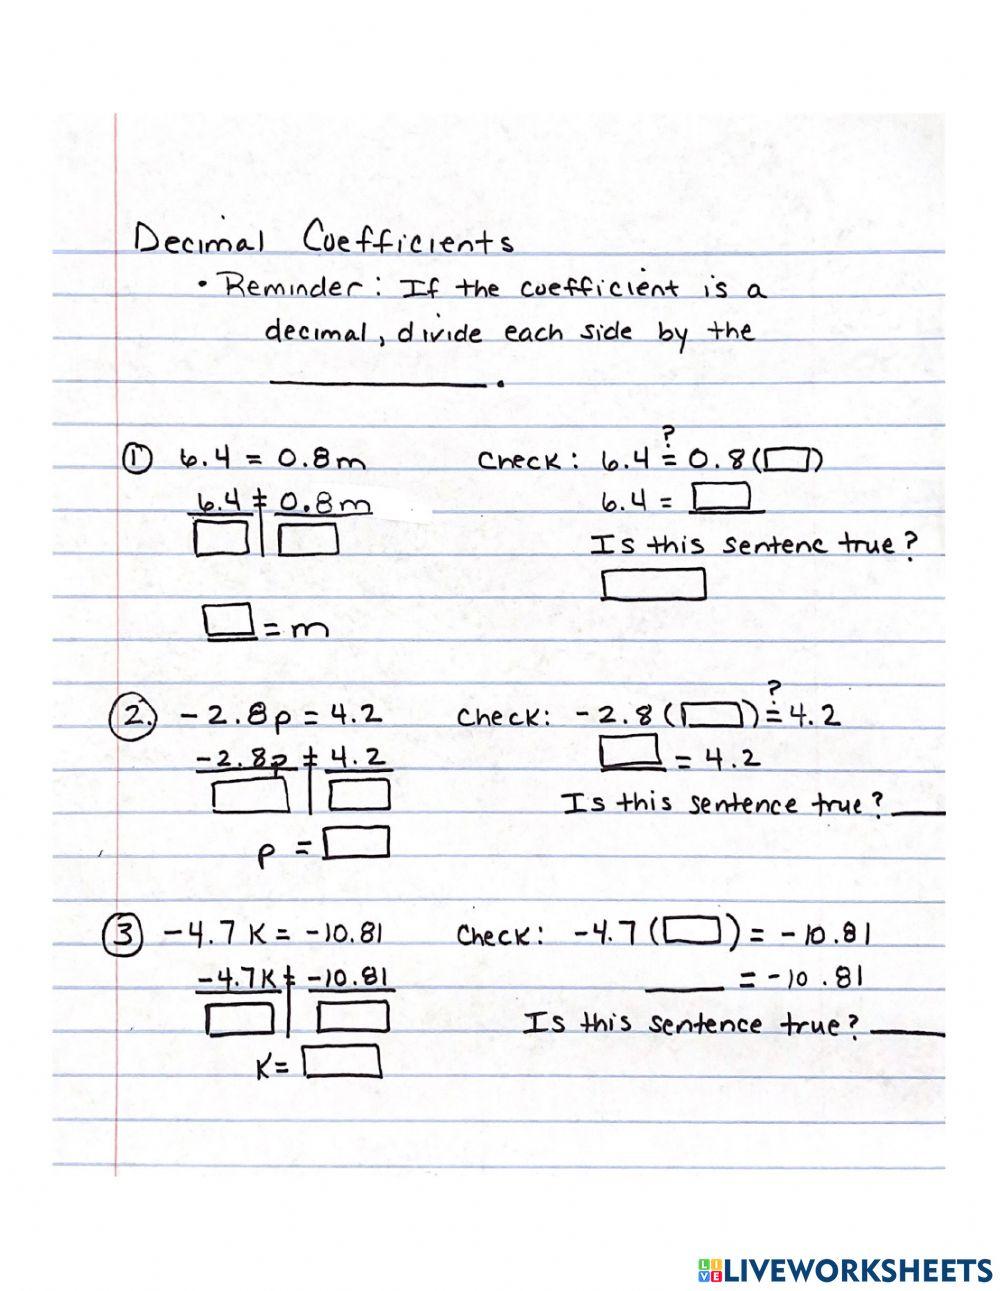 Decimal Coefficients
• Reminder: If the coefficient is a
decimal, divide each side by the
__________.
① 6.4 = 0.8m
6.4 = 0.8m
= m
Check: 6.4 ?= 0.8( )
6.4 =
Is this sentenc true?
②. -2.8p = 4.2
-2.8p = 4.2
p =
Check: -2.8( ) ?= 4.2
= 4.2
Is this sentence true? ____
③ -4.7K = -10.81
-4.7K = -10.81
K =
Check: -4.7( ) = -10.81
____ = -10.81
Is this sentence true? ____
LIVE LIVEWORKSHEETS